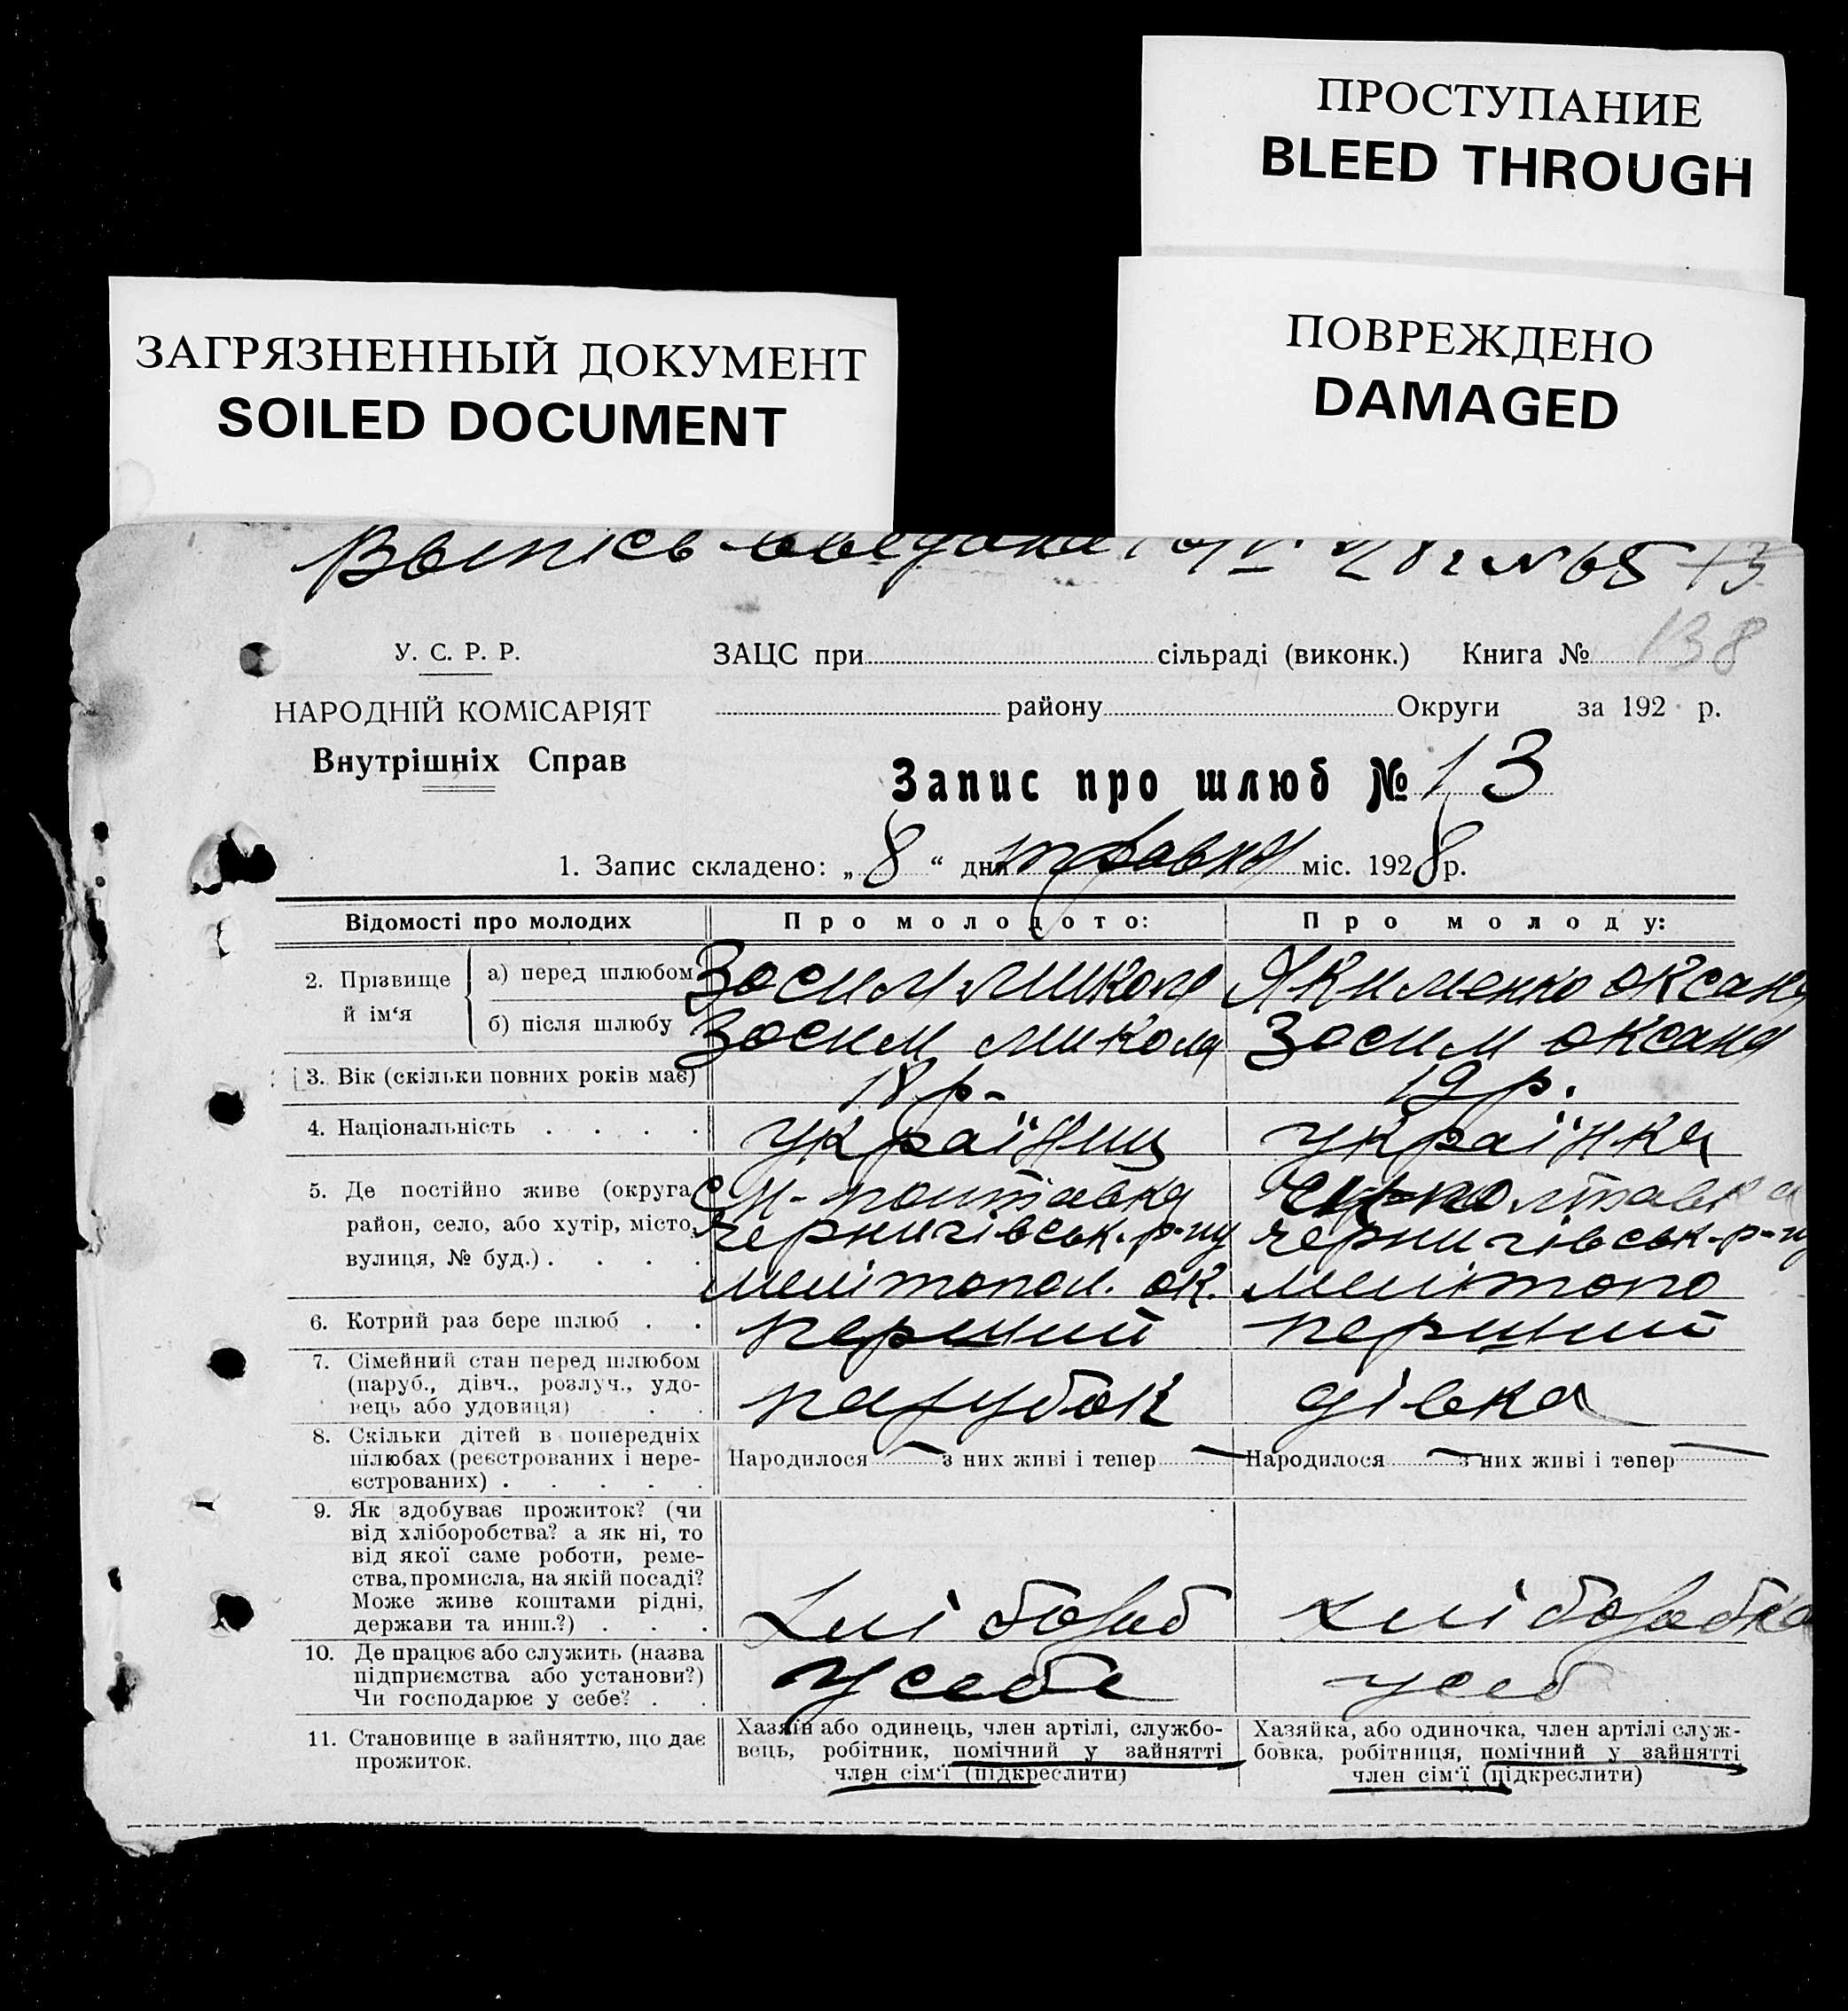 ПРОСТУПАНИЕ
BLEED THROUGH
ПОВРЕЖДЕНО
DAMAGED
ЗАГРЯЗНЕННЫЙ ДОКУМЕНТ
SOILED DOCUMENT
Выпісь № 65 13
138
У. С. Р. Р.
НАРОДНІЙ КОМІСАРІЯТ
Внутрішніх Справ
ЗАЦС при сільраді (виконк.) Книга №
району Округи за 192 р.
Запис про шлюб № 13
1. Запис складено: „ 8 “ дня травня міс. 1928 р.
Відомості про молодих Про молодого: Про молоду:
2. Прізвище й ім‘я
а) перед шлюбом Зосим Микола Якименко Оксана
б) після шлюбу Зосим Микола Зосим Оксана
3. Вік (скільки повних років має) 18 р. 19 р.
4. Національність українц українка
5. Де постійно живе (округа, район, село, або хутір, місто, вулиця, № буд.)
с. Н-Полтавка Полтавка
Чернигівськ. р-ну Чернигівськ. р-ну
Мелітопол. ок. Мелітопо
6. Котрий раз бере шлюб перший перший
7. Сімейний стан перед шлюбом
(паруб., дівч., розлуч., удо-
вець або удовиця) парубок дівка
8. Скільки дітей в попередніх
шлюбах (реєстрованих і нере-
єстрованих) Народилося — з них живі і тепер — Народилося — з них живі і тепер —
9. Як здобуває прожиток? (чи
від хліборобства? а як ні, то
від якої саме роботи, реме-
ства, промисла, на якій посаді?
Може живе коштами рідні,
держави та инш.?) хлібороб хліборобка
10. Де працює або служить (назва
підприємства або установи?)
Чи господарює у себе? у себе у себ
11. Становище в зайняттю, що дає
прожиток.
Хазяїн або одинець, член артілі, службо-
вець, робітник, помічний у зайнятті
член сім‘ї (підкреслити)
Хазяйка, або одиночка, член артілі служ-
бовка, робітниця, помічний у зайнятті
член сім‘ї (підкреслити)